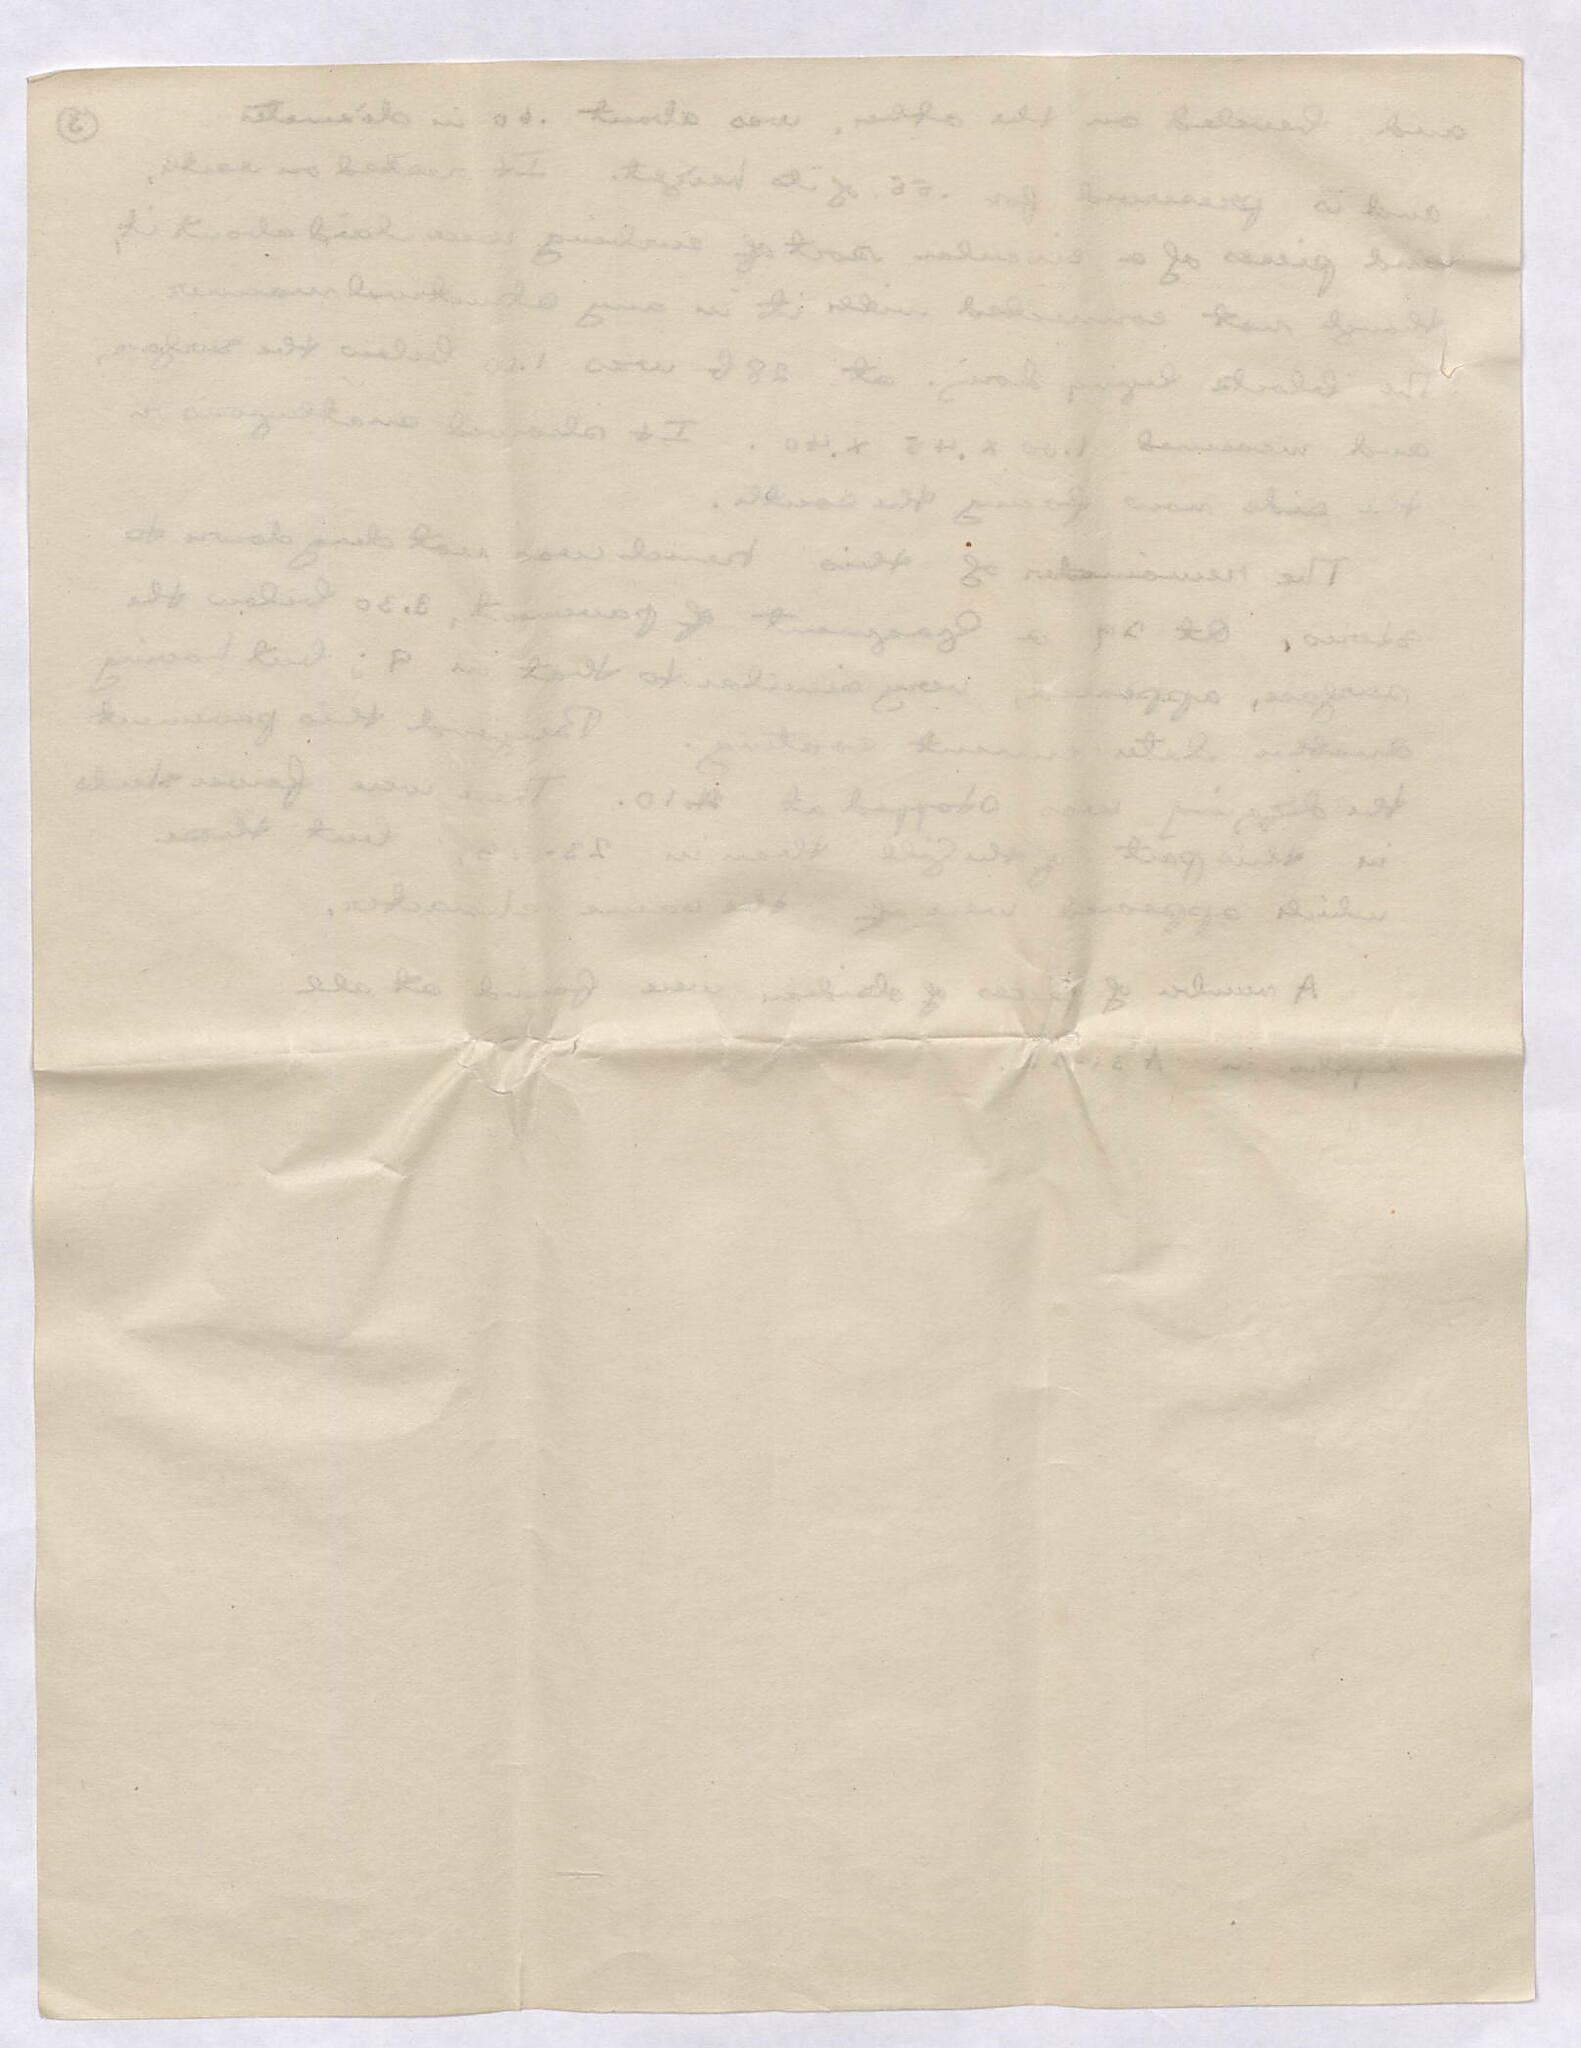 ③
and beveled on the other, was about .60 in diameter
and is preserved for .55 of its height. It rested on earth,
and pieces of a circular sort of curbing were laid about it,
though not connected with it in any structural manner
The blocks lying hori. at 28 b was 1.10 below the surface,
and measured 1.00 x .45 x .40. It showed anathyrosis in
the side now facing the south.
The remainder of this trench was not dug down to
stereo. At 29 a fragment of pavement, 3.30 below the
surface, appeared, very similar to that in 9; but having
another later cement coating. Beyond this pavement
the digging was stopped at 4.10. There were fewer sherds
in this part of the fill than in 23-25, but those
which appeared were of the same character.
A number of pieces of obsidian were found at all
depths in